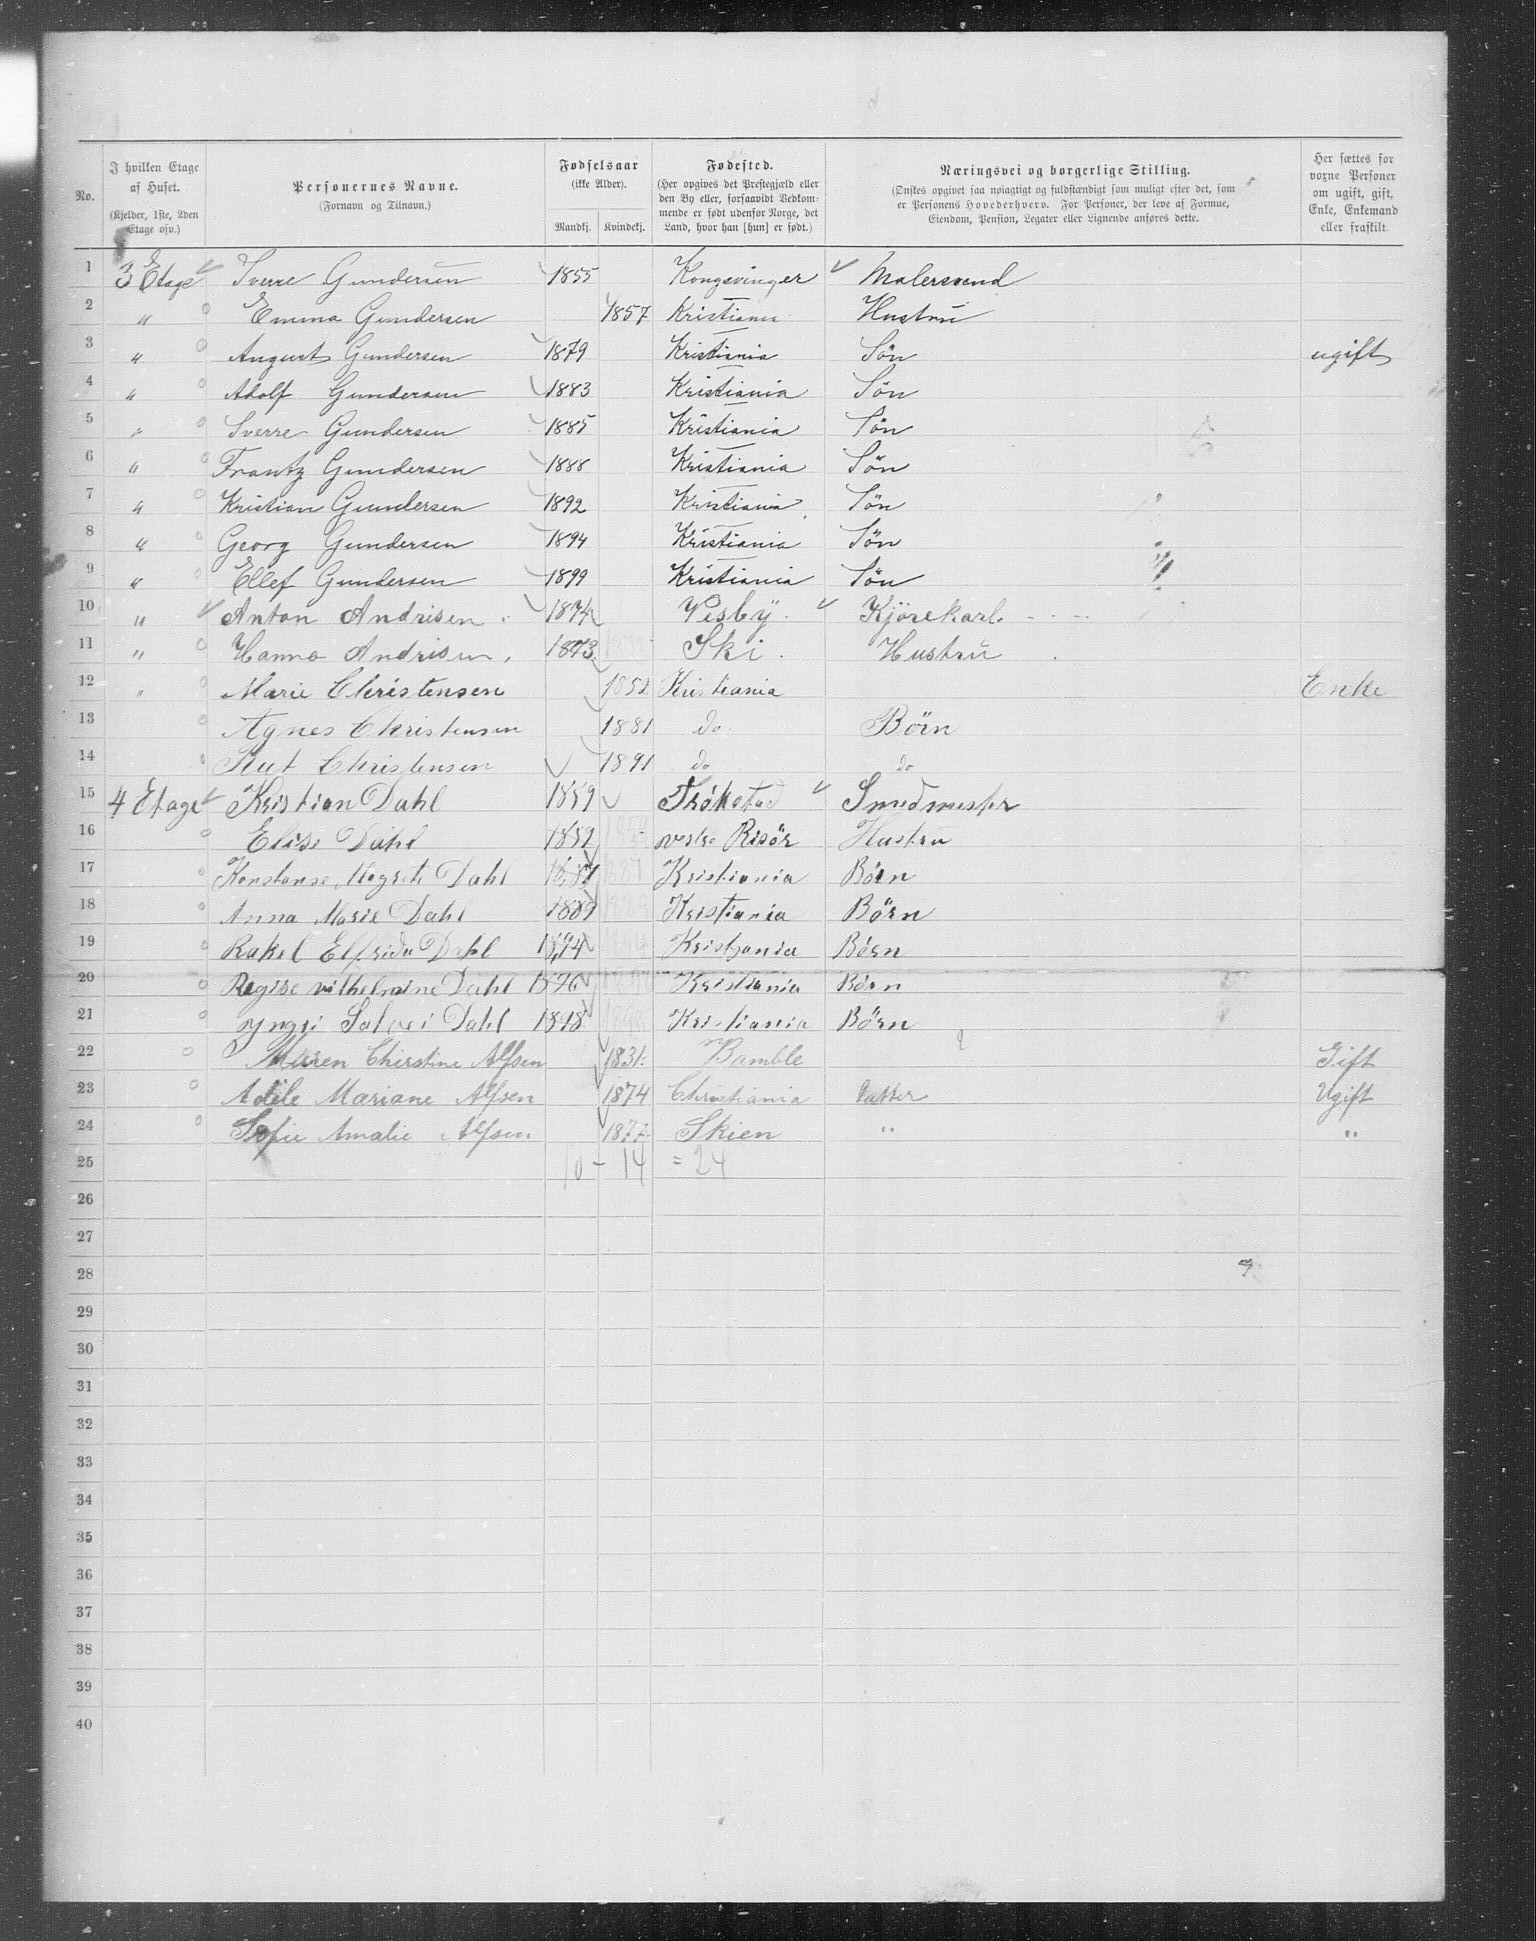 No. I hvilken Etage af Huset. (Kjelder, 1ste, 2den Etage osv.) Personernes Navne. (Fornavn og Tilnavn.) Fødselsaar (ikke Alder). Mandkj. Kvindekj. Fødested. (Her opgives det Prestegjæld eller den By eller, forsaavidt Vedkommende er født udenfor Norge, det Land, hvor han [hun] er født.) Næringsvei og borgerlige Stilling. (Ønskes opgivet saa nøiagtigt og fuldstændigt som muligt efter det, som er Personens Hovederhverv. For Personer, der leve af Formue, Eiendom, Pension, Legater eller Lignende anføres dette. Her sættes for voxne Personer om ugift, gift, Enke, Enkemand eller fraskilt.
1 3 Etage Sverre Gundersen 1855 Kongsvinger Malersvend
2 " Emma Gundersen 1857 Kristiania Hustru
3 " August Gundersen 1879 Kristiania Søn ugift
4 " Adolf Gundersen 1883 Kristiania Søn
5 " Sverre Gundersen 1885 Kristiania Søn
6 " Frantz Gundersen 1888 Kristiania Søn
7 " Kristian Gundersen 1892 Kristiania Søn
8 " Georg Gundersen 1894 Kristiania Søn
9 " Ellef Gundersen 1899 Kristiania Søn
10 " Anton Andrisen 1874 Vesby Kjørekarl
11 " Hanna Andrisen 1873 Ski Hustru
12 " Marie Christensen 1852 Kristiania Enke
13 Agnes Christensen 1881 do Børn
14 Rut Christensen 1891 do do
15 4 Etage Kristian Dahl 1859 Trøkstad Smedmester
16 Elise Dahl 1859 vestre Risør Hustru
17 Konstanse Magrete Dahl 1887 Kristiania Børn
18 Anna Marie Dahl 1889 Kristiania Børn
19 Rakel Elfrida Dahl 1894 Kristiania Børn
20 Regise vilhelmine Dahl 1896 Kristiania Børn
21 Salvei Dahl 1898 Kristiania Børn
22 Maren Chirstine Alfsen 1831 Bamble Gift
23 Adile Mariane Alfsen 1874 Christiania Datter Ugift
24 Sofie Amalie Alfsen 1877 Skien " "
25 10 - 14 = 24
26
27
28
29
30
31
32
33
34
35
36
37
38
39
40